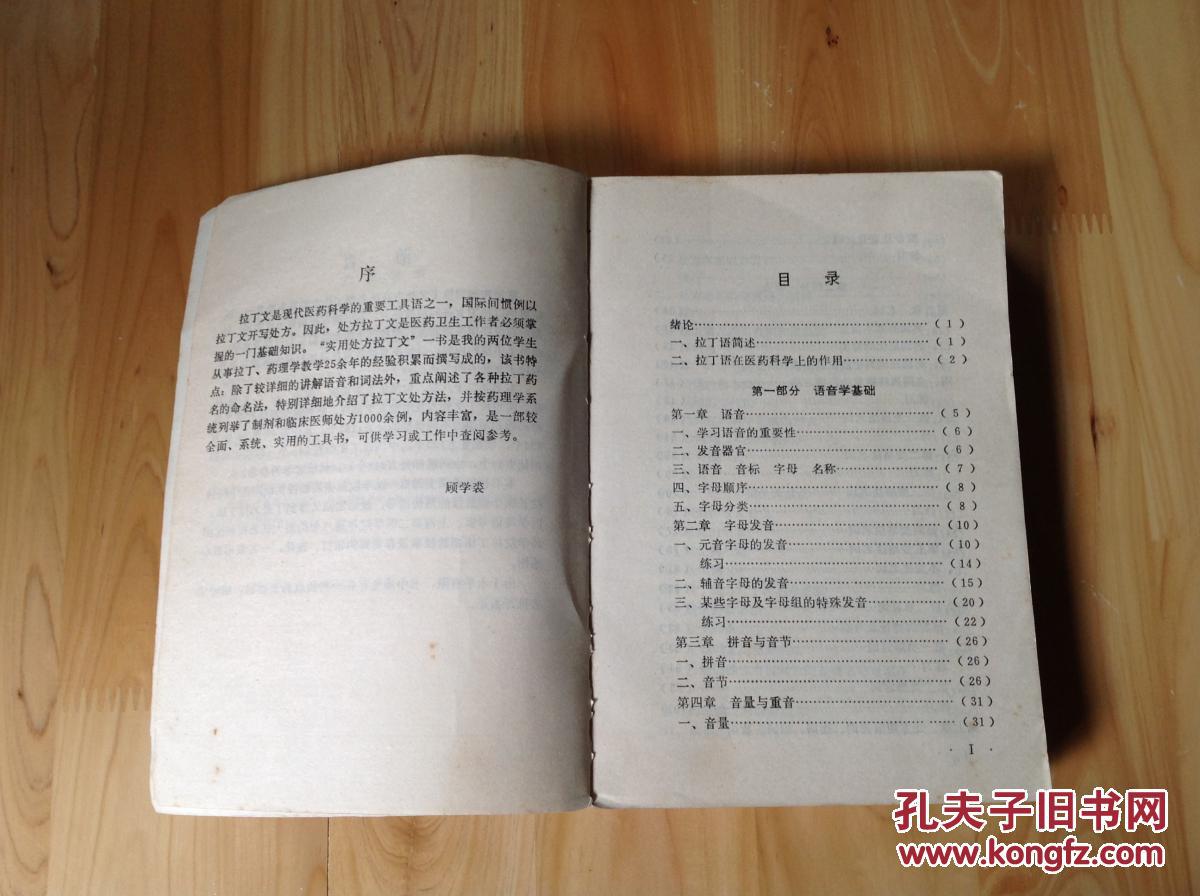 序
拉丁文是现代医药科学的重要工具语之一，国际间惯例以
拉丁文开写处方。因此，处方拉丁文是医药卫生工作者必须掌
握的一门基础知识。“实用处方拉丁文”一书是我的两位学生
从事拉丁、药理学教学25余年的经验积累而撰写成的，该书特
点：除了较详细的讲解语音和词法外，重点阐述了各种拉丁药
名的命名法，特别详细地介绍了拉丁文处方法，并按药理学系
统列举了制剂和临床医师处方1000余例，内容丰富，是一部较
全面、系统、实用的工具书，可供学习或工作中查阅参考。
顾学裘
目 录
绪论……………………………………（1）
一、拉丁语简述……………………………（1）
二、拉丁语在医药科学上的作用……………（2）
第一部分 语音学基础
第一章 语音………………………………（5）
一、学习语音的重要性……………………（6）
二、发音器官………………………………（6）
三、语音 音标 字母 名称………………（7）
四、字母顺序………………………………（8）
五、字母分类………………………………（8）
第二章 字母发音…………………………（10）
一、元音字母的发音………………………（10）
练习………………………………………（14）
二、辅音字母的发音………………………（15）
三、某些字母及字母组的特殊发音…………（20）
练习………………………………………（22）
第三章 拼音与音节………………………（26）
一、拼音……………………………………（26）
二、音节……………………………………（26）
第四章 音量与重音………………………（31）
一、音量……………………………………（31）
· I ·
孔夫子旧书网
www.kongfz.com